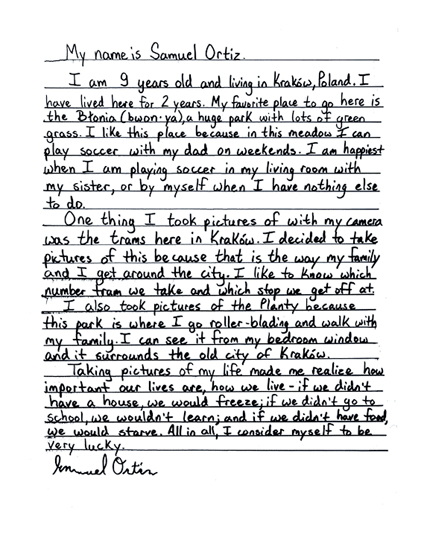 My name is Samuel Ortiz.
I am 9 years old and living in Kraków, Poland. I
have lived here for 2 years. My favorite place to go here is
the Błonia (bwon·ya), a huge park with lots of green
grass. I like this place because in this meadow I can
play soccer with my dad on weekends. I am happiest
when I am playing soccer in my living room with
my sister, or by myself when I have nothing else
to do.
One thing I took pictures of with my camera
was the trams here in Kraków. I decided to take
pictures of this because that is the way my family
and I get around the city. I like to know which
number tram we take and which stop we get off at.
I also took pictures of the Planty because
this park is where I go roller-blading and walk with
my family. I can see it from my bedroom window
and it surrounds the old city of Kraków.
Taking pictures of my life made me realize how
important our lives are, how we live - if we didn't
have a house, we would freeze; if we didn't go to
school, we wouldn't learn; and if we didn't have food,
we would starve. All in all, I consider myself to be
very lucky.
Samuel Ortiz